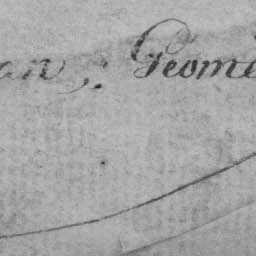 an; Geome